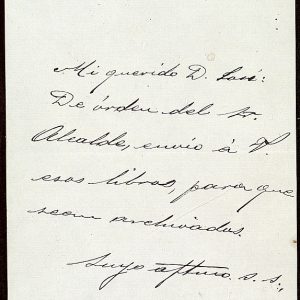 Mi querido D. Luis:
De órden del Sr.
Alcalde, envio á V.
esos libros, para que
sean archivados.
Suyo aftmo. s. s.,